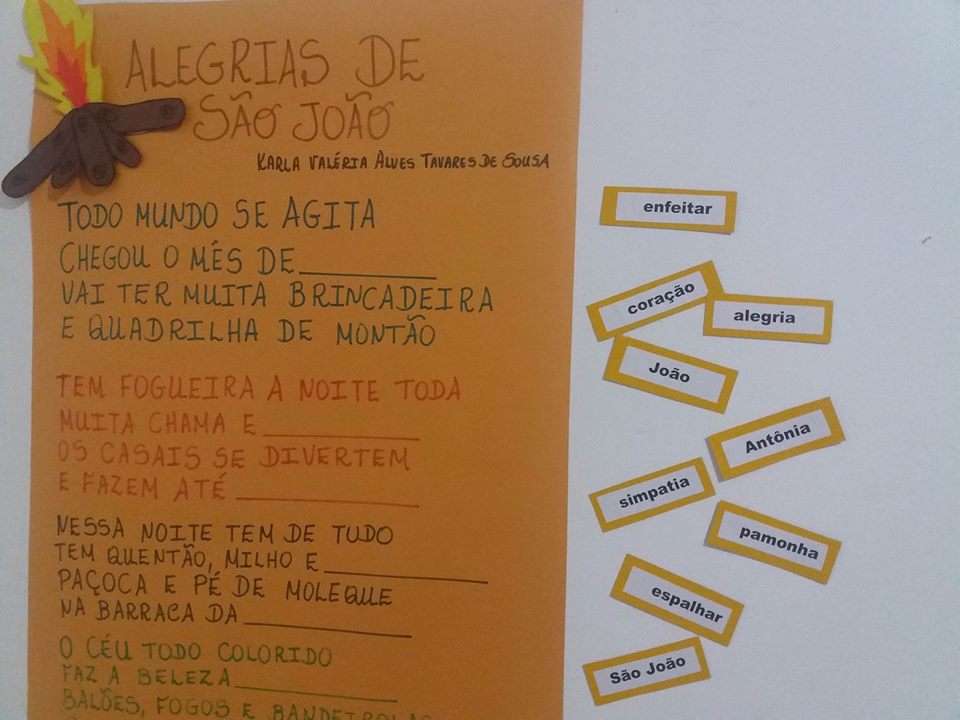 ALEGRIAS DE
SÃO JOÃO
KARLA VALÉRIA ALVES TAVARES DE SOUSA
TODO MUNDO SE AGITA
CHEGOU O MÊS DE__________
VAI TER MUITA BRINCADEIRA
E QUADRILHA DE MONTÃO
TEM FOGUEIRA A NOITE TODA
MUITA CHAMA E__________
OS CASAIS SE DIVERTEM
E FAZEM ATÉ__________
NESSA NOITE TEM DE TUDO
TEM QUENTÃO, MILHO E__________
PAÇOCA E PÉ DE MOLEQUE
NA BARRACA DA__________
O CÉU TODO COLORIDO
FAZ A BELEZA__________
BALÕES, FOGOS E BANDEIROLAS
enfeitar
coração
alegria
João
Antônia
simpatia
pamonha
espalhar
São João